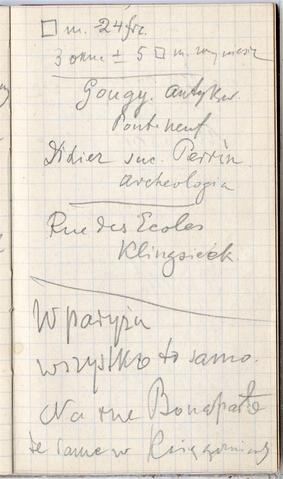 □ m. 24 frs.
3 okna ± 5 □ m.
Gougy. Antykw.
Pont neuf
Didier suc. Perrin
Archeologia
Rue des Ecoles
Klingsieck
W paryżu
wszystko to samo.
Na rue Bonaparte
te same w Księgarniach